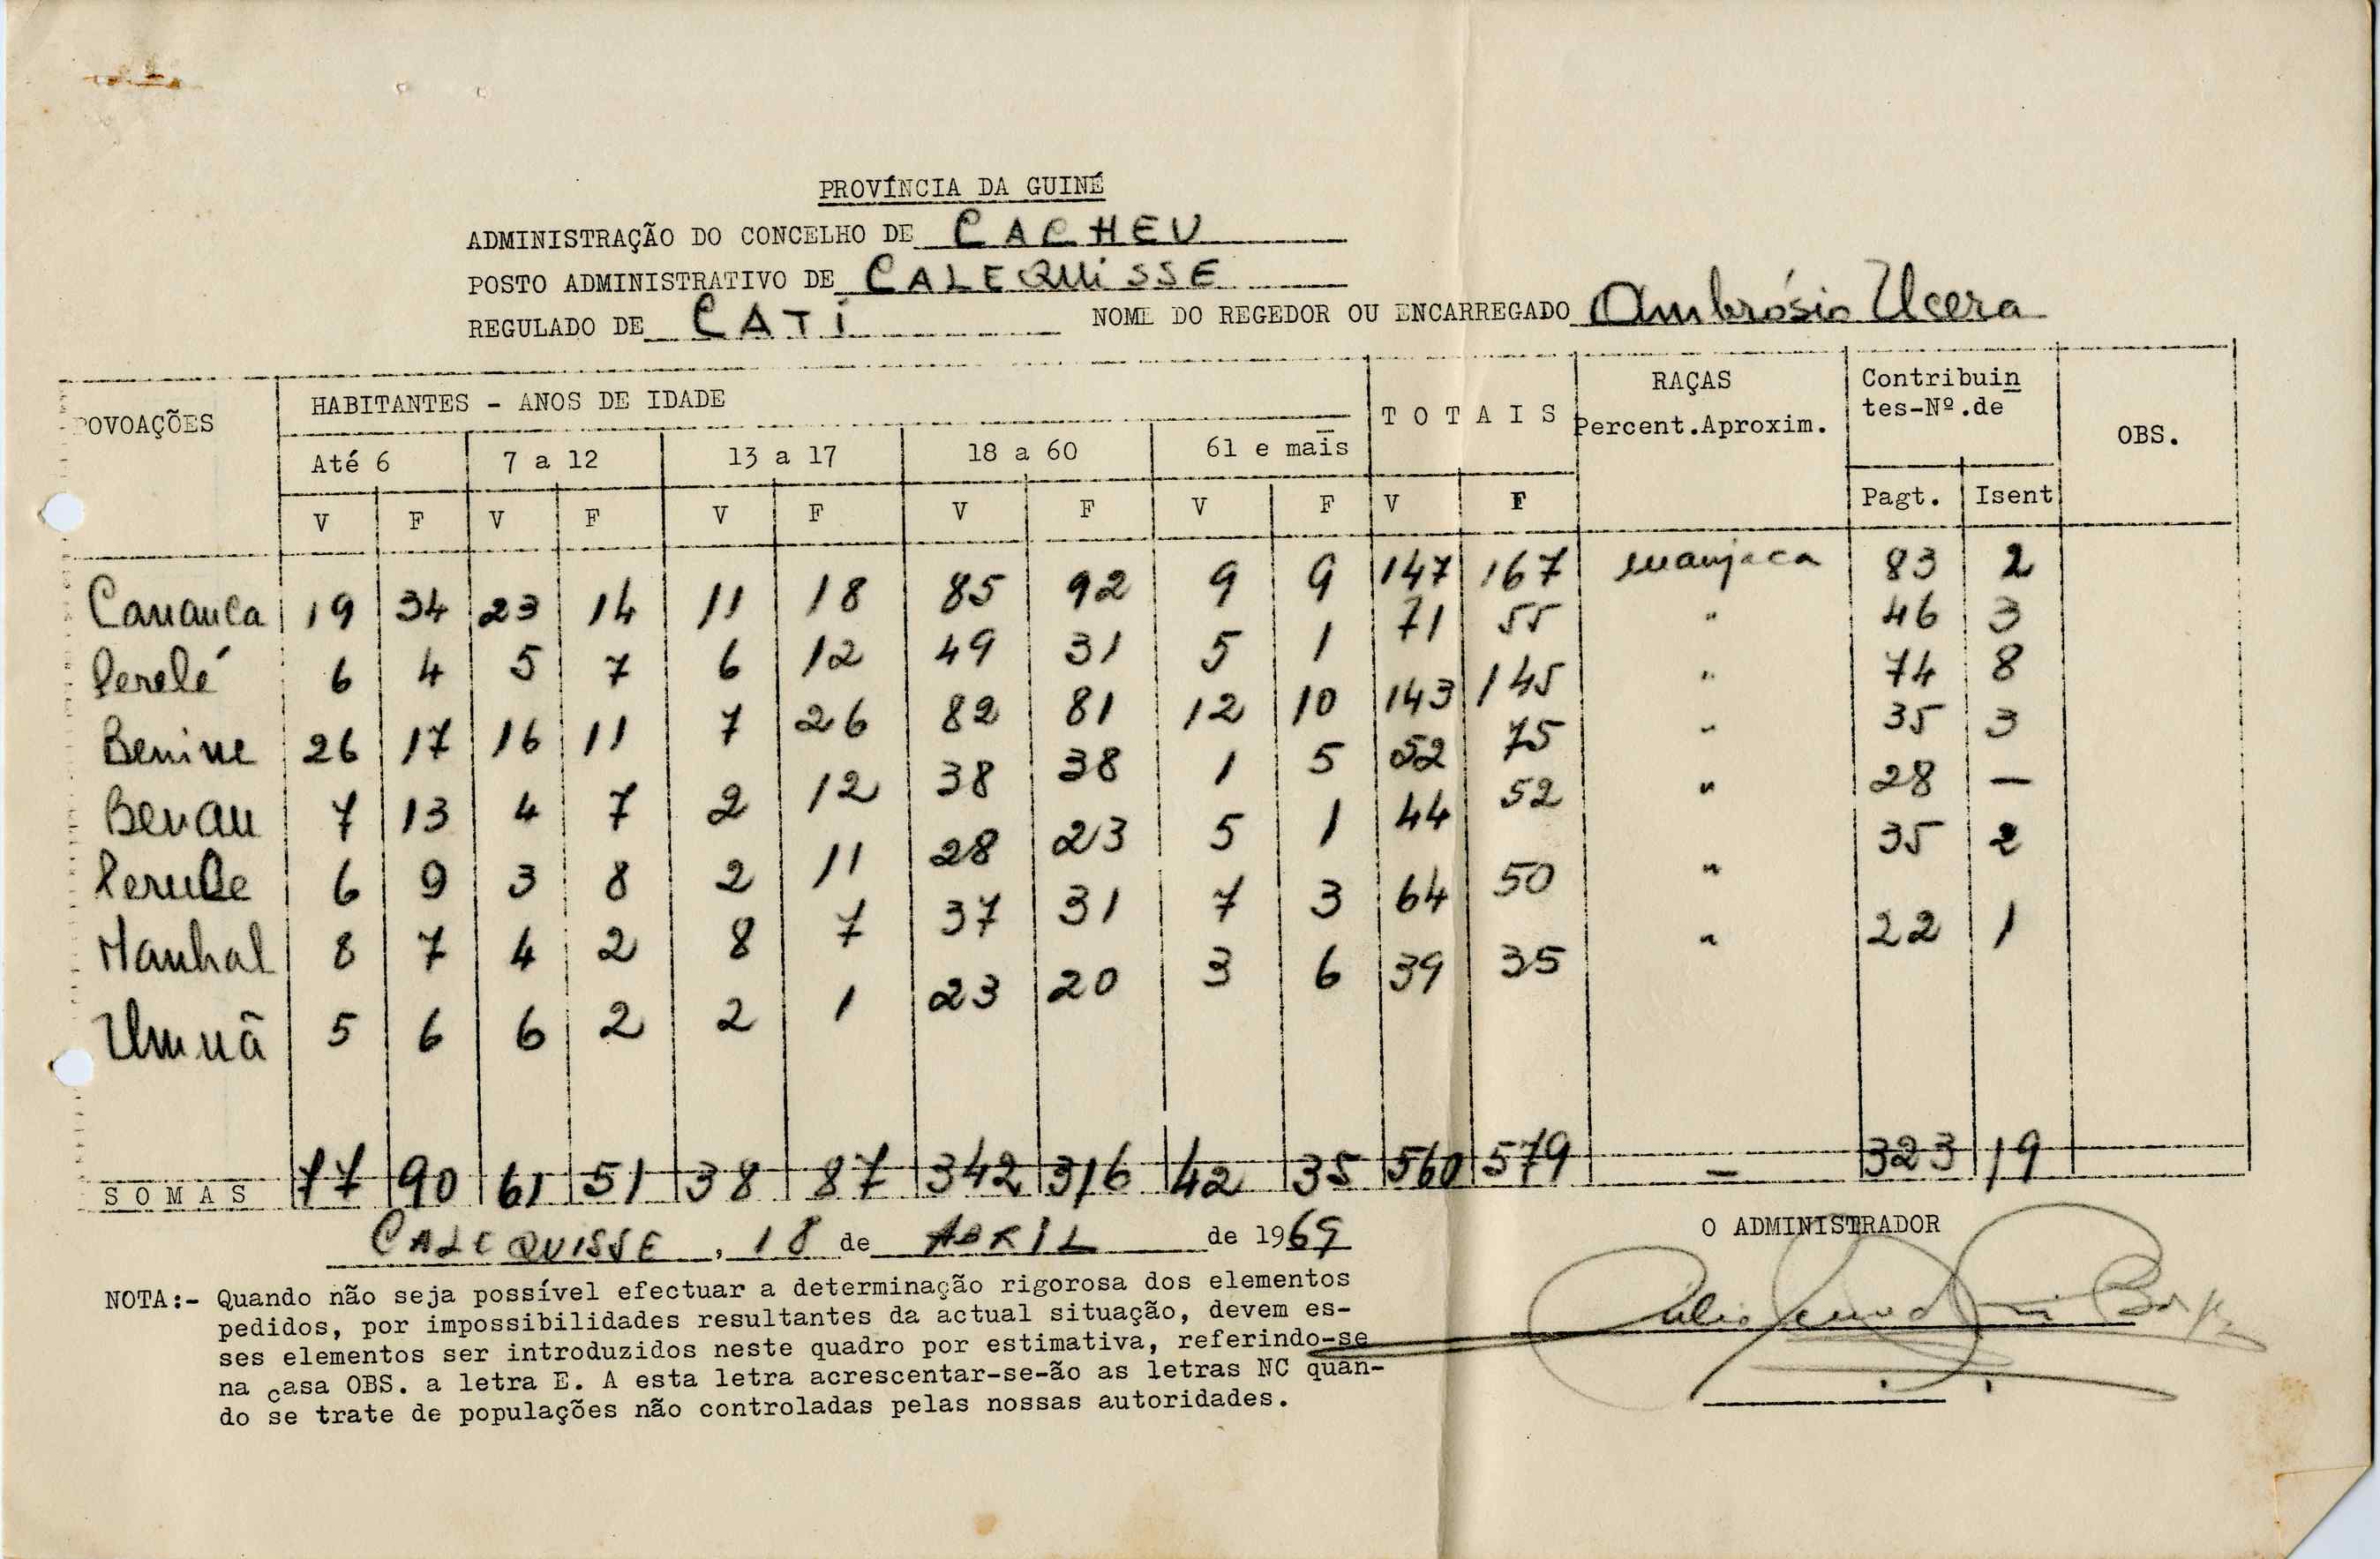 PROVÍNCIA DA GUINÉ
ADMINISTRAÇÃO DO CONCELHO DE CACHEU
POSTO ADMINISTRATIVO DE CALEQUISSE
REGULADO DE CATI NOME DO REGEDOR OU ENCARREGADO Ambrósio Ucera
POVOAÇÕES HABITANTES - ANOS DE IDADE T O T A I S RAÇAS Percent.Aproxim. Contribuin tes-Nº.de OBS.
Até 6 7 a 12 13 a 17 18 a 60 61 e mais
V F V F V F V F V F V F Pagt. Isent
Cananca 19 34 23 14 11 18 85 92 9 9 147 167 manjaca 83 2
Perelé 6 4 5 7 6 12 49 31 5 1 71 55 " 46 3
Benine 26 17 16 11 7 26 82 81 12 10 143 145 " 74 8
Benau 7 13 4 7 2 12 38 38 1 5 52 75 " 35 3
6 9 3 8 2 11 28 23 5 1 44 52 " 28 —
Manhal 8 7 4 2 8 7 37 31 7 3 64 50 " 35 2
5 6 6 2 2 1 23 20 3 6 39 35 " 22 1
S O M A S 77 90 61 51 38 87 342 316 42 35 560 579 — 323 19
CALEQUISSE, 18 de ABRIL de 1969
O ADMINISTRADOR
NOTA:- Quando não seja possível efectuar a determinação rigorosa dos elementos
pedidos, por impossibilidades resultantes da actual situação, devem es-
ses elementos ser introduzidos neste quadro por estimativa, referindo-se
na casa OBS. a letra E. A esta letra acrescentar-se-ão as letras NC quan-
do se trate de populações não controladas pelas nossas autoridades.